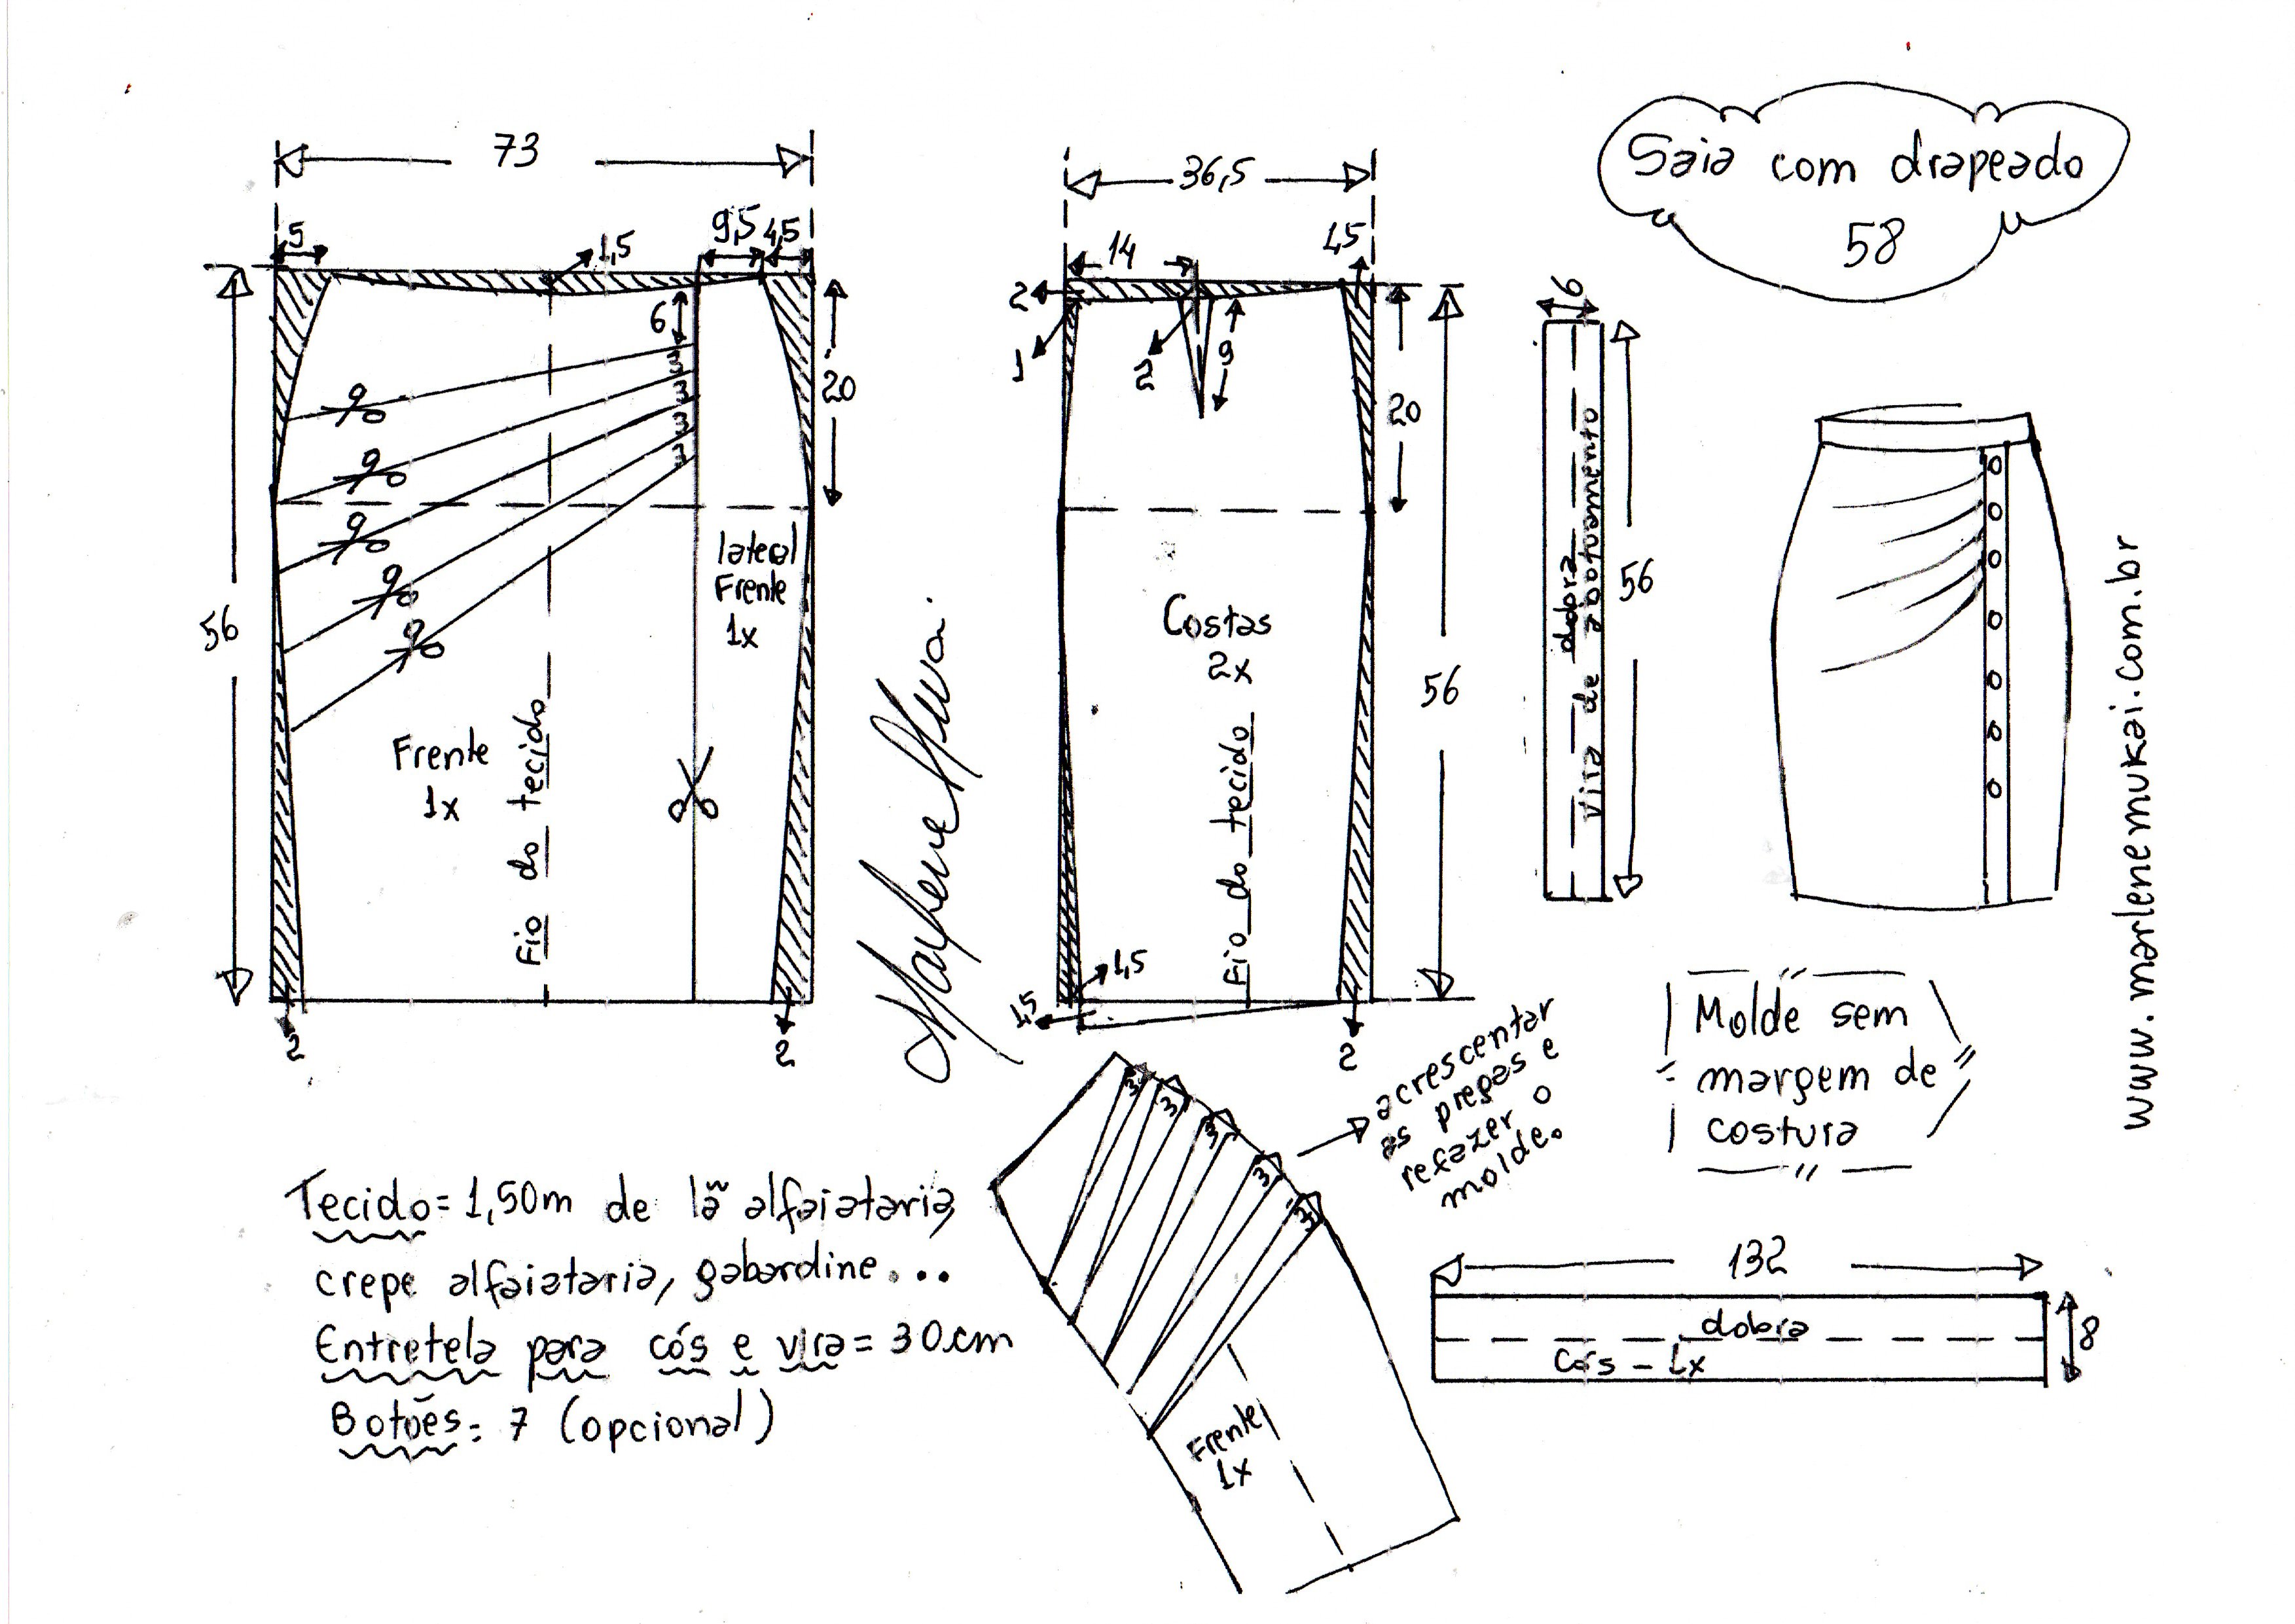 Saia com drapeado
58
73
5
1,5
9,5
4,5
6
3
3
3
3
20
56
lateral
Frente
1x
Frente
1x
Fio do tecido
36,5
14
1,5
2
1
2
9
20
56
Costas
2x
Fio do tecido
1,5
1,5
2
2
2
6
56
dobra
vira de abotuamento
www.marlenemukai.com.br
Molde sem
margem de
costura
3
3
3
3
3
acrescentar
as pregas e
refazer o
molde.
Frente
1x
132
8
dobra
cós - 1x
Tecido = 1,50m de lã alfaiataria,
crepe alfaiataria, gabardine...
Entretela para cós e vira = 30cm
Botões = 7 (opcional)